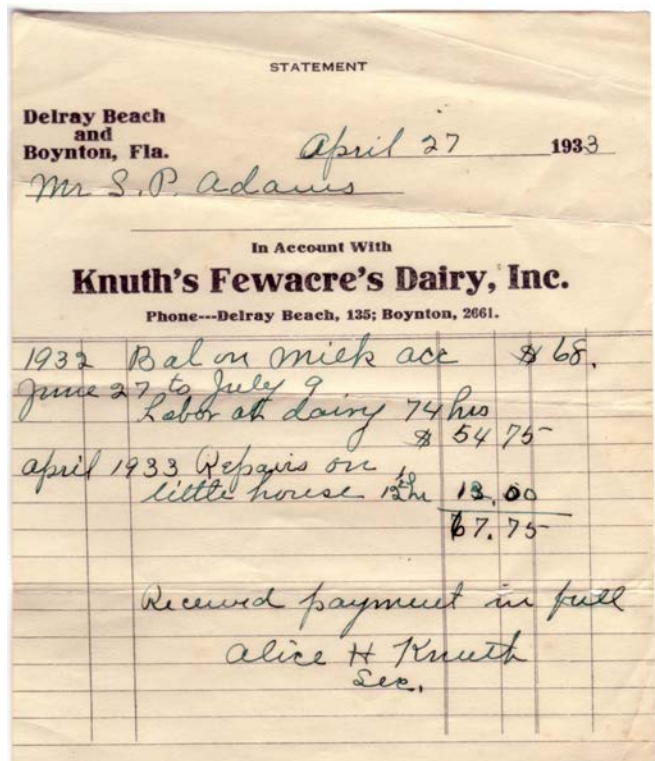 STATEMENT
Delray Beach
and
Boynton, Fla.
April 27 1933
Mr S. P. Adams
In Account With
Knuth's Fewacre's Dairy, Inc.
Phone---Delray Beach, 135; Boynton, 2661.
1932 Bal on milk acc $ 68.
June 27 to July 9
Labor at dairy 74 hrs
$ 54 75
April 1933 Repairs on
little house hr 13.00
67.75
Received payment in full
Alice H Knuth
Sec.